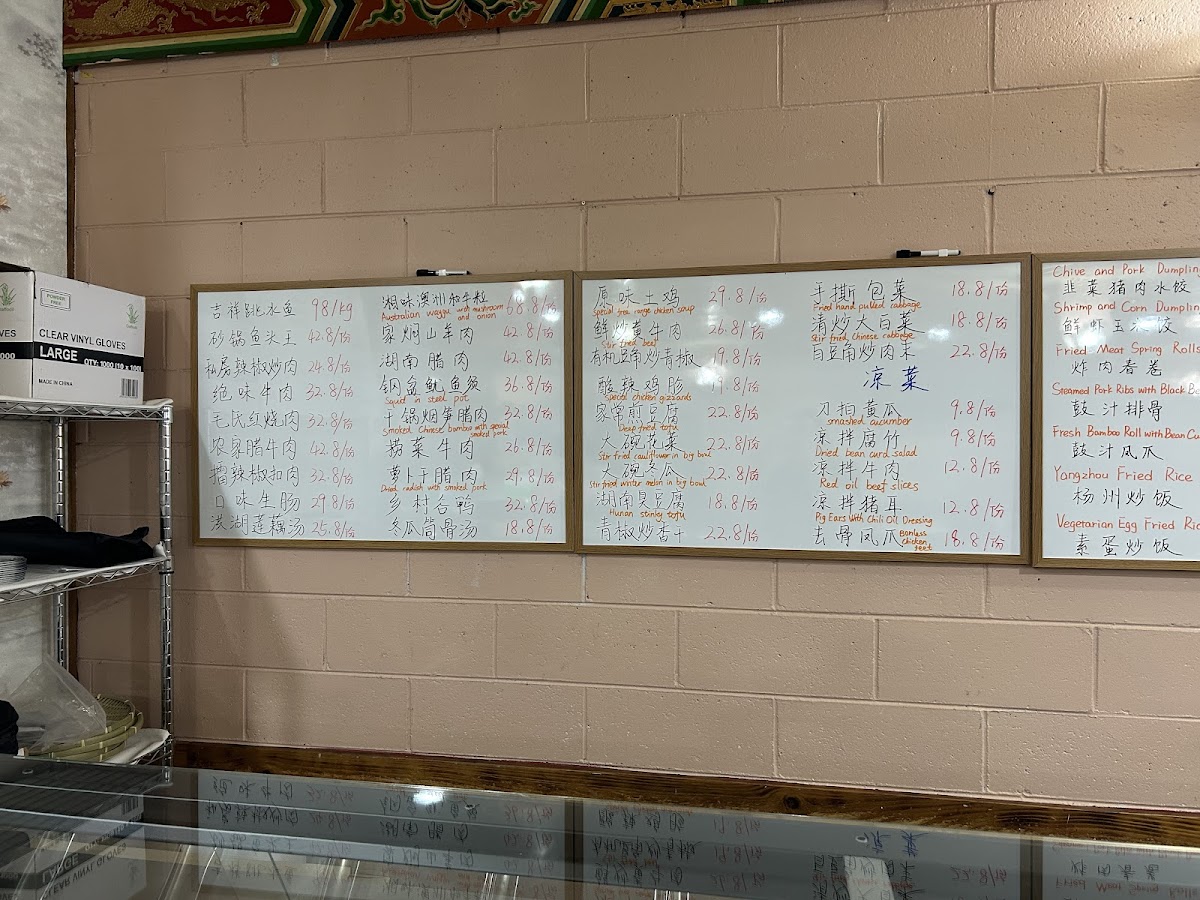 POWDER FREE
CLEAR VINYL GLOVES
LARGE QTY: 1000 (10 x 100)
MADE IN CHINA
吉祥跳水鱼 98/kg
砂锅鱼头王 42.8/份
私房辣椒炒肉 24.8/份
绝味牛肉 32.8/份
毛氏红烧肉 32.8/份
农家腊牛肉 42.8/份
擂辣椒扣肉 32.8/份
口味生肠 29.8/份
洪湖莲藕汤 25.8/份
湘味澳洲和牛粒 68.8/份
Australian wagyu with mushroom and onion
家焖山羊肉 42.8/份
湖南腊肉 42.8/份
钢盆鱿鱼须 36.8/份
Squid in steel pot
干锅烟笋腊肉 32.8/份
Smoked Chinese bamboo with special smoked pork
捞菜牛肉 26.8/份
萝卜干腊肉 29.8/份
Dried radish with smoked pork
乡村合鸭 32.8/份
冬瓜筒骨汤 18.8/份
原味土鸡 29.8/份
Special free range chicken soup
鲜炒黄牛肉 26.8/份
Stir fried beef
有机豆角炒青椒 19.8/份
酸辣鸡胗 19.8/份
Special chicken gizzards
家常煎豆腐 22.8/份
Deep fried tofu
大碗花菜 22.8/份
Stir fried cauliflower in big bowl
大碗冬瓜 22.8/份
Stir fried winter melon in big bowl
湖南臭豆腐 18.8/份
Hunan stinky tofu
青椒炒香干 22.8/份
手撕包菜 18.8/份
Fried hand pulled cabbage
清炒大白菜 18.8/份
Stir fried Chinese cabbage
白豆角炒肉末 22.8/份
凉菜
刀拍黄瓜 9.8/份
smashed cucumber
凉拌腐竹 9.8/份
Dried bean curd salad
凉拌牛肉 12.8/份
Red oil beef slices
凉拌猪耳 12.8/份
Pig Ears With Chili Oil Dressing
去骨凤爪 Bonless chicken feet 18.8/份
Chive and Pork Dumplin
韭菜猪肉水饺
Shrimp and Corn Dumplin
鲜虾玉米饺
Fried Meat Spring Rolls
炸肉春卷
Steamed Pork Ribs with Black Be
豉汁排骨
Fresh Bamboo Roll with Bean Cu
豉汁凤爪
Yangzhou Fried Rice
杨州炒饭
Vegetarian Egg Fried Ric
素蛋炒饭